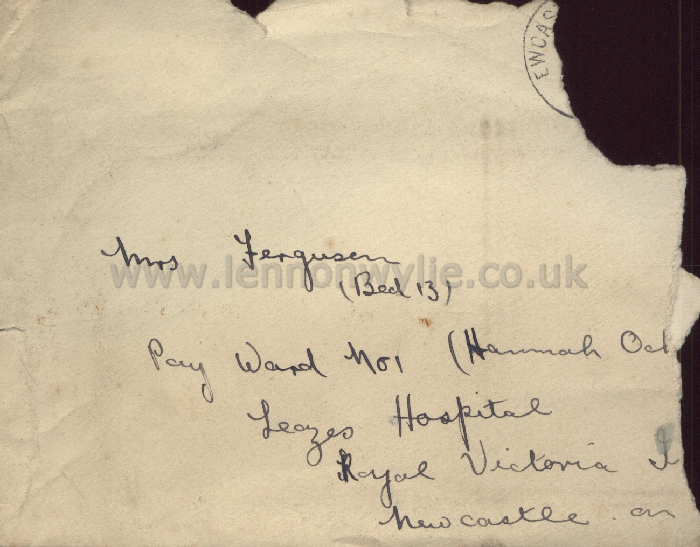 EWCAS
Mrs Ferguson
www.lennonwylie.co.uk
(Bed 13)
Pay Ward No1 (Hannah Oct
Leazes Hospital
Royal Victoria I
Newcastle. on